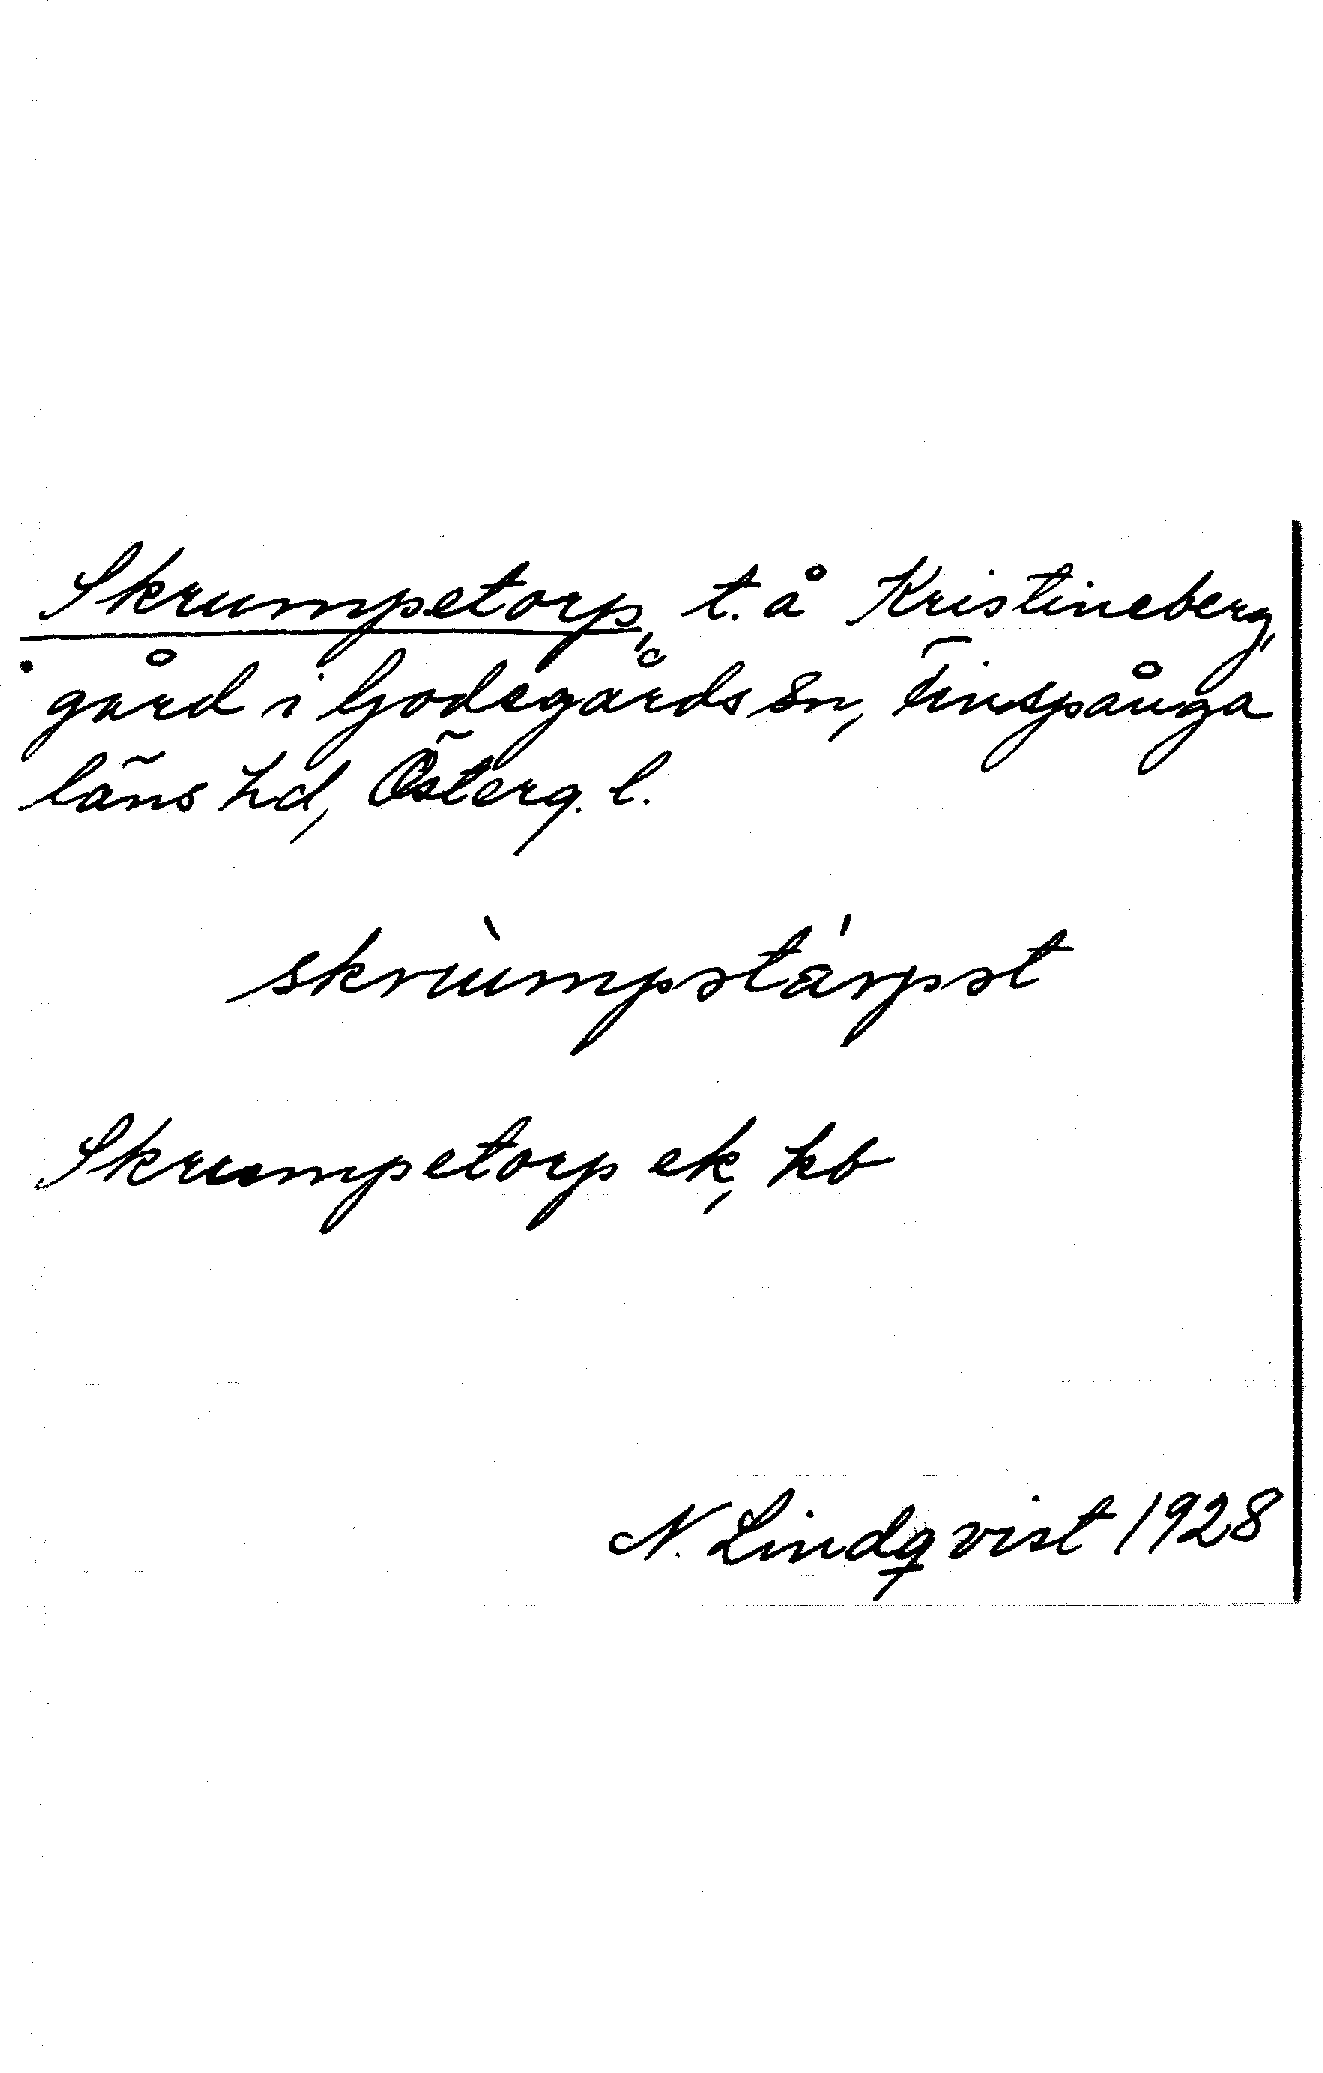 Skrumpetorp, t. å Kristineberg,
gård i Godegårds sn, Finspånga
läns hd, Österg. l.
skrùmpətárpət
Skrumpetorp ek, kb
N. Lindqvist 1928